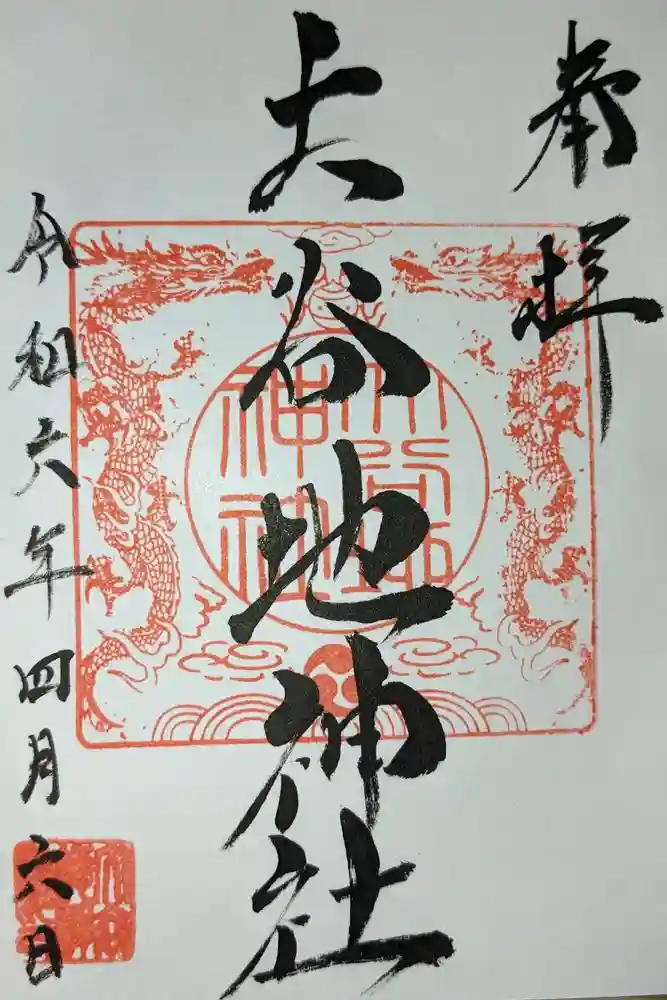 奉拝
大谷地神社
令和六年四月六日
大谷地
神社